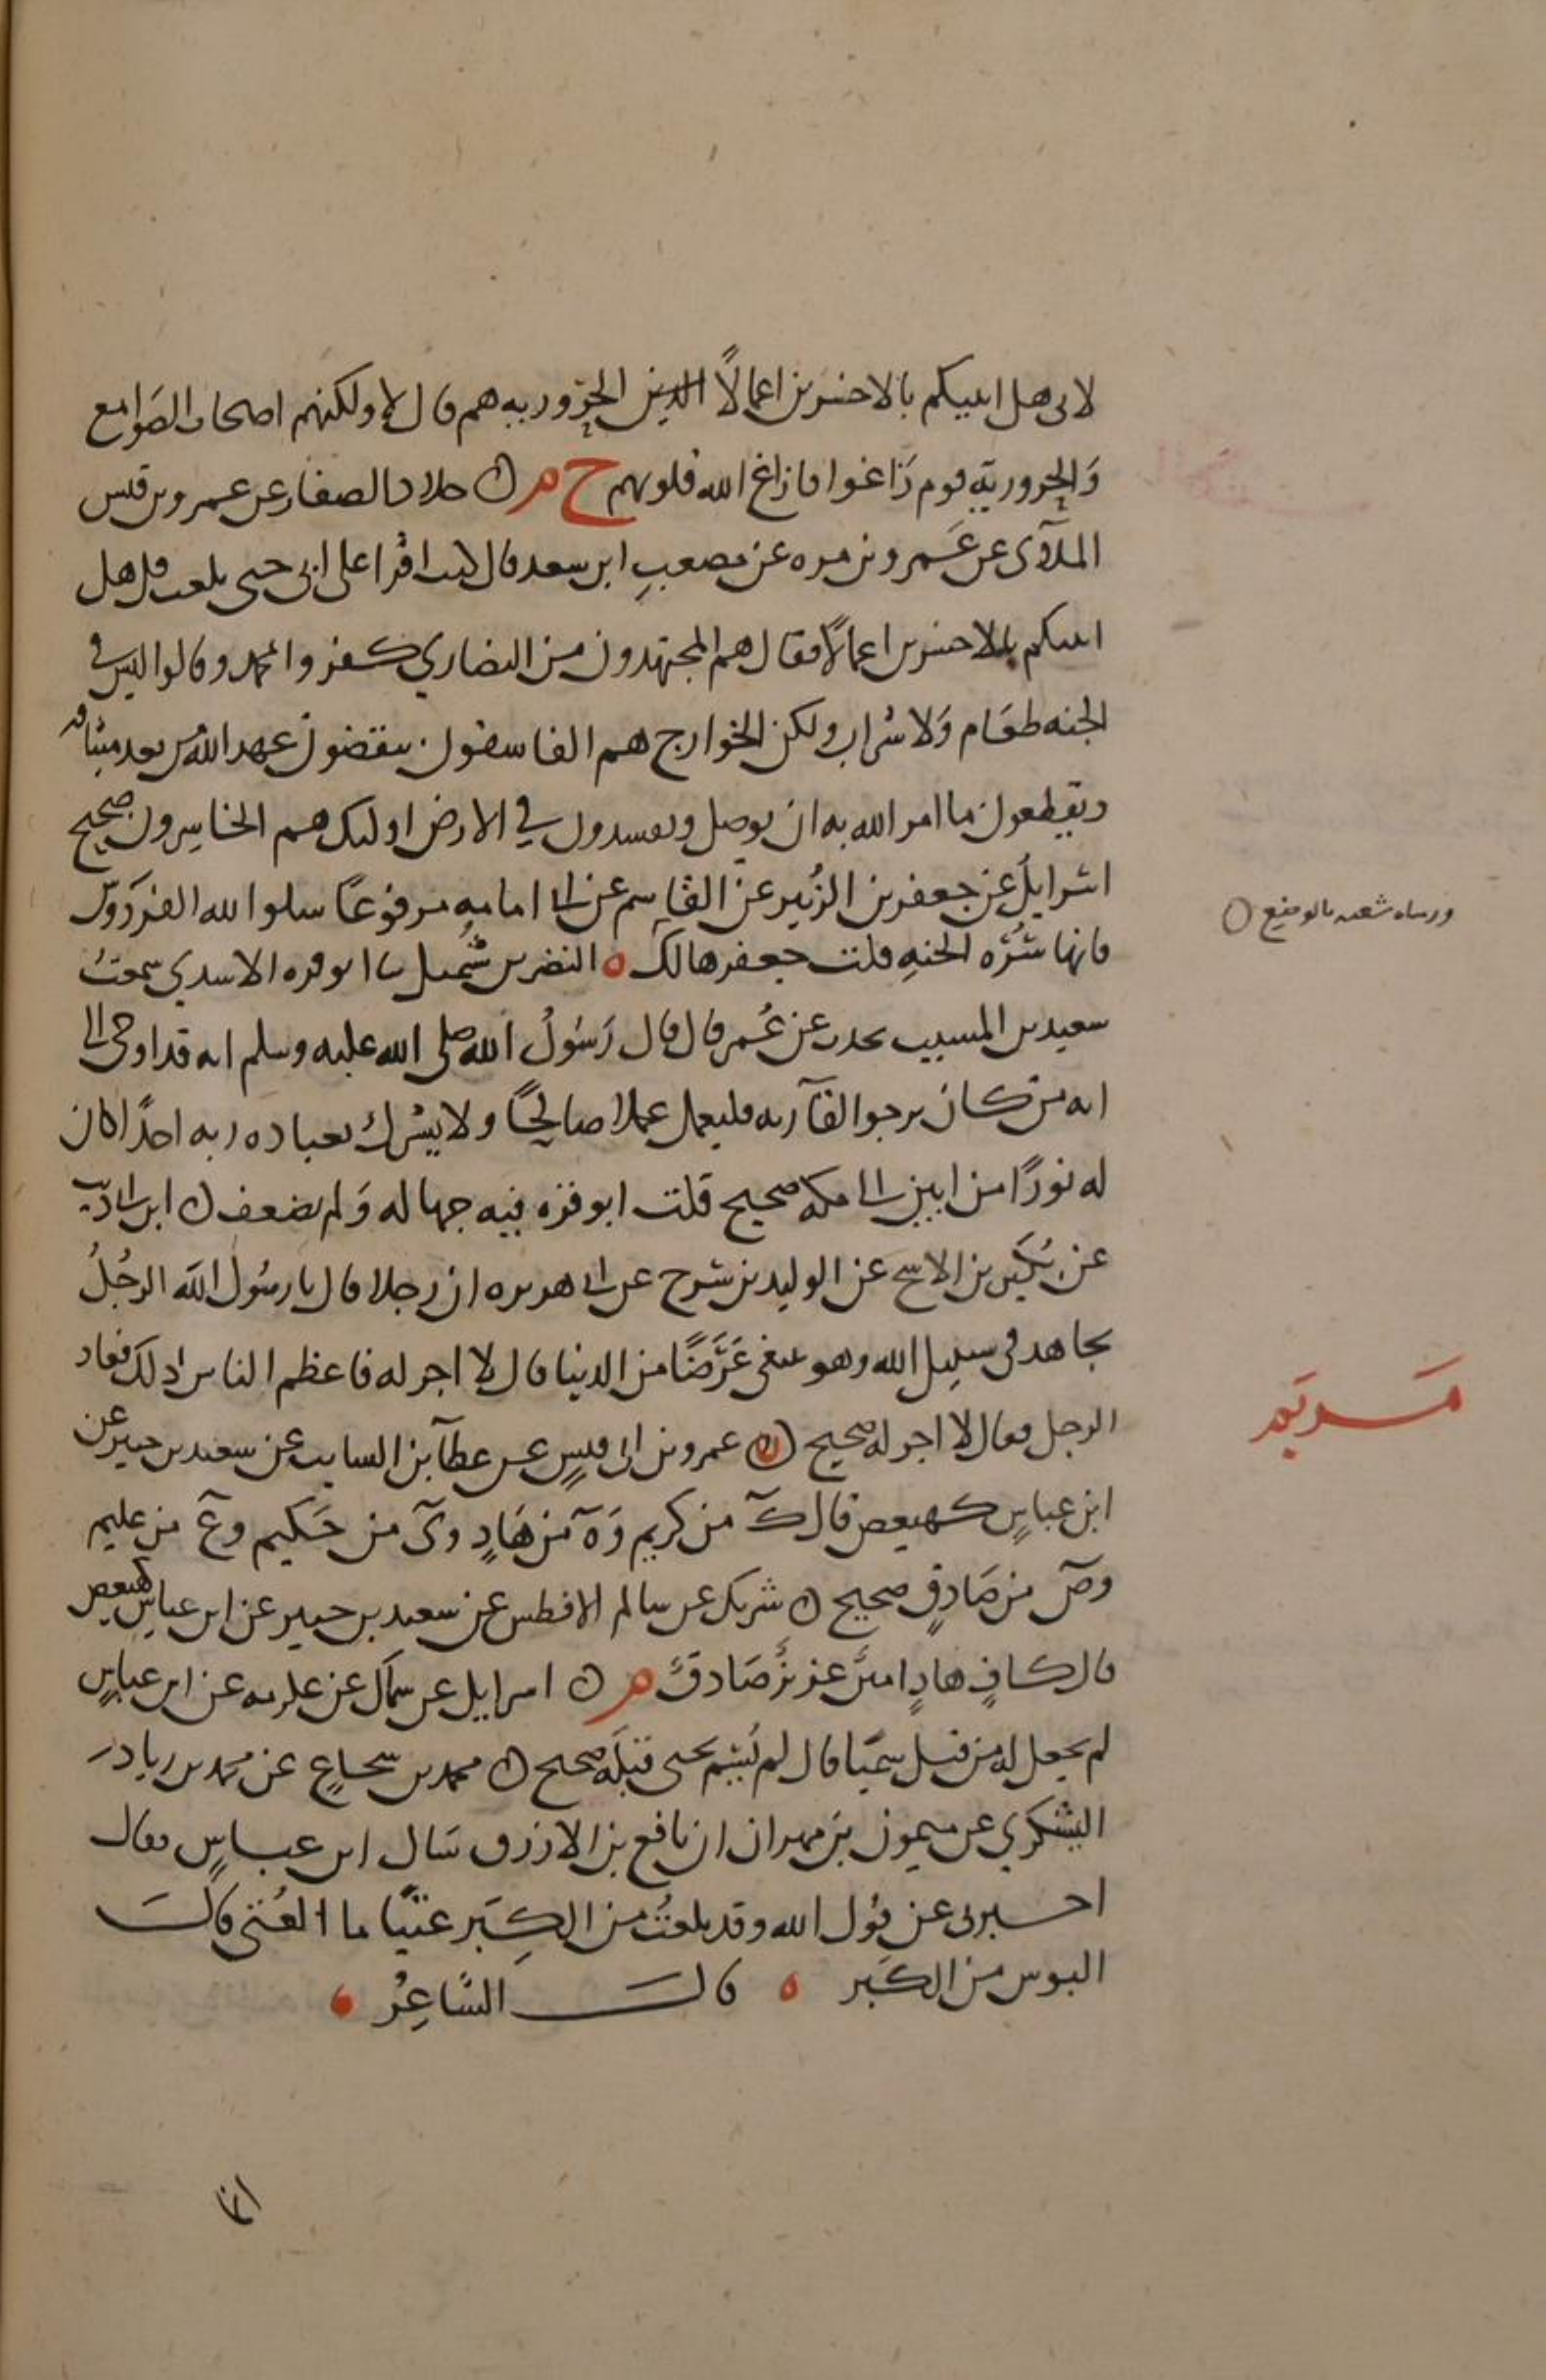 لابي هل انبيكم بالاخسرين اعمالًا الحروريه هم قال لا ولكنهم اصحاب الصوامع
وَالحروريّة قوم زَاغوا فازاغ الله قلوبهم خ م ۞ خلاد الصفار عن عمرو بن قيس
الملآى عن عَمرو بن مره عن مصعبِ ابن سعد قال كنت اقرا على ابى حتى بلغت قل هل
انبيكم بالاخسرين اعمالًا فقال هم المجتهدون من النصارى كفروا بمحمد وقالوا ليس في
الجنه طعَام وَلا شراب ولكن الخوارج هم الفاسقون ينقضون عهد الله من بعد ميثاقه
ويقطعون ما امر الله به ان يوصل ويفسدون في الارض اوليك هم الخاسِرون صحيح
اسرايل عن جعفر بن الزُبير عن القاسم عن ابى امامه مرفوعًا سلوا الله الفردَوس
فانها سُرّه الجنهِ قلت جعفر هالك ه النضر بن شُميل ثنا ابو قره الاسدي سمعتُ
سعيد بن المسيب يحدث عن عُمر قال قال رَسُولُ الله صلى الله عليه وسلم انه قد اوحى الى
انه من كان يرجوا لقآ ربه فليعمل عملا صالحًا ولا يشرك بعباده ربه احدًا كان
له نورًا من ابين الى مكه صحيح قلت ابو قره فيه جهاله وَلم يضعف ۞ ابن ابى ذيب
عن بُكَير بن الاشج عن الوليد بن سرح عن ابى هريره ان رجلا قال يا رسُول الله الرجُلُ
يجاهد فى سبيل الله وهو يبتغى عَرَضًا من الدنيا قال لا اجر له فاعظم الناس ذلك فعاد
الرجل فقال لا اجر له صحيح ۞ عمرو بن ابى قيسٍ عن عطآ بن السايب عن سعيد بن جبير عن
ابن عباسٍ كهيعص قال كَ من كريم وَهَ من هَادٍ وىَ من حَكيم وعَ من عليم
وصَ من صَادقٍ صحيح ۞ شريك عن سالم الافطس عن سعيد بن جبير عن ابن عباسٍ كهيعص
قال كافٍ هادٍ امينٌ عزيزٌ صَادقٌ م ۞ اسرايل عن سماك عن عكرمه عن ابن عباسٍ
لم يجعل له من قبل سميًا قال لم يُسَم يحيى قبلَه صحيح ۞ محمد بن شجاعٍ عن محمد بن زياد
اليشكري عن ميمون بن مهران ان نافع بن الازرق سَال ابن عباسٍ فقال
اخبرنى عن قول الله وقد بلغتُ من الكِبَر عتيًا ما العُتى قالَ
البوس من الكبَر ه قالَ الشاعِرُ ه
ورساه شعبه بالوضع ۞